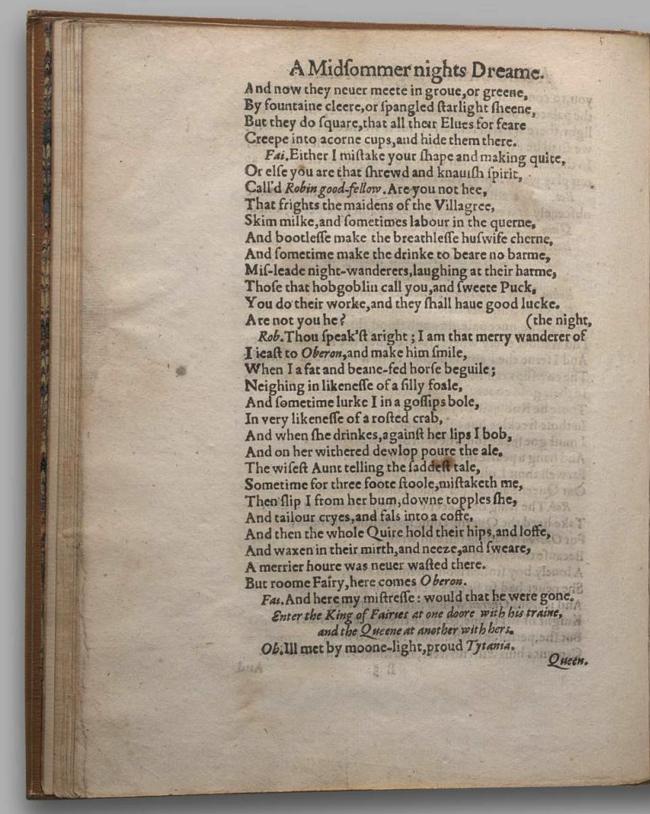 A Midſommer nights Dreame.
And now they neuer meete in groue, or greene,
By fountaine cleere, or ſpangled ſtarlight ſheene,
But they do ſquare, that all their Elues for feare
Creepe into acorne cups, and hide them there.
Fai. Either I miſtake your ſhape and making quite,
Or elſe you are that ſhrewd and knauiſh ſpirit,
Call'd Robin good-fellow. Are you not hee,
That frights the maidens of the Villagree,
Skim milke, and ſometimes labour in the querne,
And bootleſſe make the breathleſſe huſwife cherne,
And ſometime make the drinke to beare no barme,
Miſ-leade night-wanderers, laughing at their harme,
Thoſe that hobgoblin call you, and ſweete Puck,
You do their worke, and they ſhall haue good lucke.
Are not you he? (the night,
Rob. Thou ſpeak'ſt aright; I am that merry wanderer of
I ieaſt to Oberon, and make him ſmile,
When I a fat and beane-fed horſe beguile;
Neighing in likeneſſe of a ſilly foale,
And ſometime lurke I in a goſſips bole,
In very likeneſſe of a roſted crab,
And when ſhe drinkes, againſt her lips I bob,
And on her withered dewlop poure the ale.
The wiſeſt Aunt telling the ſaddeſt tale,
Sometime for three foote ſtoole, miſtaketh me,
Then ſlip I from her bum, downe topples ſhe,
And tailour cryes, and fals into a coffe.
And then the whole Quire hold their hips, and loffe,
And waxen in their mirth, and neeze, and ſweare,
A merrier houre was neuer waſted there.
But roome Fairy, here comes Oberon.
Fai. And here my miſtreſſe: would that he were gone.
Enter the King of Fairies at one doore with his traine,
and the Queene at another with hers.
Ob. Ill met by moone-light, proud Tytania.
Queen.